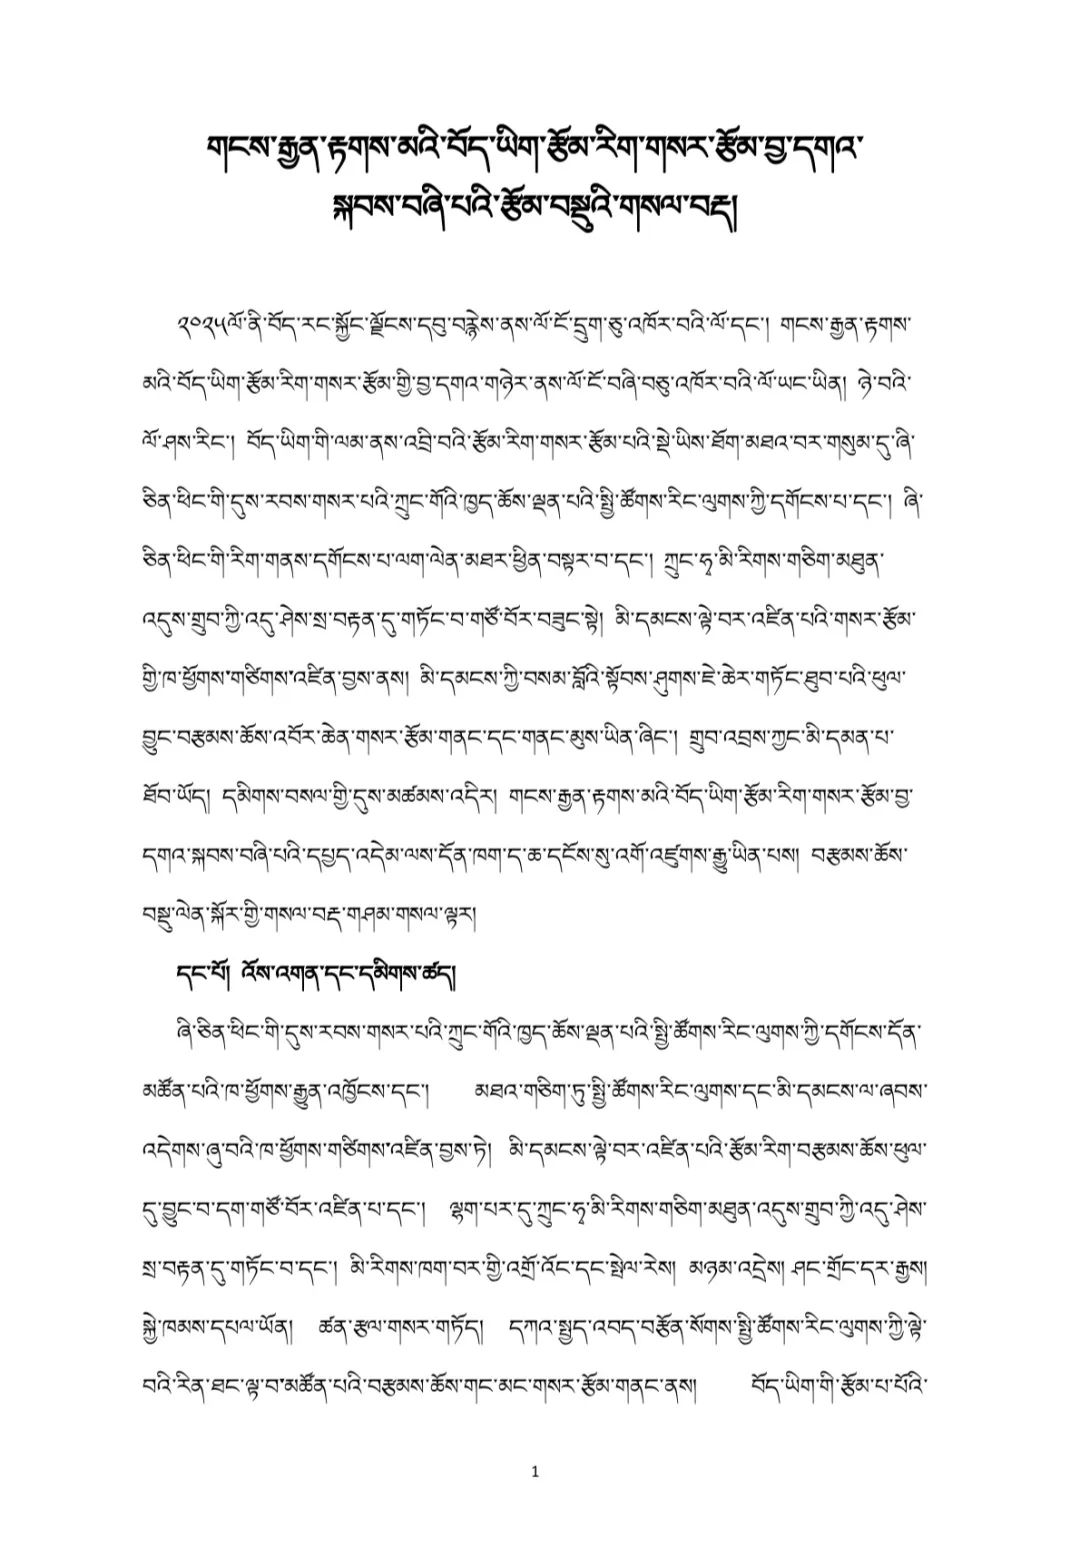 གངས་རྒྱན་རྟགས་མའི་བོད་ཡིག་རྩོམ་རིག་གསར་རྩོམ་བྱ་དགའ་
སྐབས་བཞི་པའི་རྩོམ་བསྡུའི་གསལ་བརྡ།
༢༠༢༥ལོ་ནི་བོད་རང་སྐྱོང་ལྗོངས་དབུ་བརྙེས་ནས་ལོ་ངོ་དྲུག་ཅུ་འཁོར་བའི་ལོ་དང་། གངས་རྒྱན་རྟགས་
མའི་བོད་ཡིག་རྩོམ་རིག་གསར་རྩོམ་གྱི་བྱ་དགའ་གཉེར་ནས་ལོ་ངོ་བཞི་བཅུ་འཁོར་བའི་ལོ་ཡང་ཡིན། ཉེ་བའི་
ལོ་ཤས་རིང་། བོད་ཡིག་གི་ལམ་ནས་འབྲི་བའི་རྩོམ་རིག་གསར་རྩོམ་པའི་སྡེ་ཡིས་ཐོག་མཐའ་བར་གསུམ་དུ་ཞི་
ཅིན་ཕིང་གི་དུས་རབས་གསར་པའི་ཀྲུང་གོའི་ཁྱད་ཆོས་ལྡན་པའི་སྤྱི་ཚོགས་རིང་ལུགས་ཀྱི་དགོངས་པ་དང་། ཞི་
ཅིན་ཕིང་གི་རིག་གནས་དགོངས་པ་ལག་ལེན་མཐར་ཕྱིན་བསྟར་བ་དང་། ཀྲུང་ཧྭ་མི་རིགས་གཅིག་མཐུན་
འདུས་གྲུབ་ཀྱི་འདུ་ཤེས་སྲ་བརྟན་དུ་གཏོང་བ་གཙོ་བོར་བཟུང་སྟེ། མི་དམངས་ལྟེ་བར་འཛིན་པའི་གསར་རྩོམ་
གྱི་ཁ་ཕྱོགས་གཙིགས་འཛིན་བྱས་ནས། མི་དམངས་ཀྱི་བསམ་བློའི་སྟོབས་ཤུགས་ཇེ་ཆེར་གཏོང་ཐུབ་པའི་ཕུལ་
བྱུང་བརྩམས་ཆོས་འབོར་ཆེན་གསར་རྩོམ་གནང་དང་གནང་མུས་ཡིན་ཞིང་། གྲུབ་འབྲས་ཀྱང་མི་དམན་པ་
ཐོབ་ཡོད། དམིགས་བསལ་གྱི་དུས་མཚམས་འདིར། གངས་རྒྱན་རྟགས་མའི་བོད་ཡིག་རྩོམ་རིག་གསར་རྩོམ་བྱ་
དགའ་སྐབས་བཞི་པའི་དཔྱད་འདེམ་ལས་དོན་ཁག་ད་ཆ་དངོས་སུ་འགོ་འཛུགས་རྒྱུ་ཡིན་པས། བརྩམས་ཆོས་
བསྡུ་ལེན་སྐོར་གྱི་གསལ་བརྡ་གཤམ་གསལ་ལྟར།
དང་པོ། འོས་འགན་དང་དམིགས་ཚད།
ཞི་ཅིན་ཕིང་གི་དུས་རབས་གསར་པའི་ཀྲུང་གོའི་ཁྱད་ཆོས་ལྡན་པའི་སྤྱི་ཚོགས་རིང་ལུགས་ཀྱི་དགོངས་དོན་
མཚོན་པའི་ཁ་ཕྱོགས་རྒྱུན་འཁྱོངས་དང་། མཐའ་གཅིག་ཏུ་སྤྱི་ཚོགས་རིང་ལུགས་དང་མི་དམངས་ལ་ཞབས་
འདེགས་ཞུ་བའི་ཁ་ཕྱོགས་གཙིགས་འཛིན་བྱས་ཏེ། མི་དམངས་ལྟེ་བར་འཛིན་པའི་རྩོམ་རིག་བརྩམས་ཆོས་ཕུལ་
དུ་བྱུང་བ་དག་གཙོ་བོར་འཛིན་པ་དང་། ལྷག་པར་དུ་ཀྲུང་ཧྭ་མི་རིགས་གཅིག་མཐུན་འདུས་གྲུབ་ཀྱི་འདུ་ཤེས་
སྲ་བརྟན་དུ་གཏོང་བ་དང་། མི་རིགས་ཁག་བར་གྱི་འགྲོ་འོང་དང་སྤེལ་རེས། མཉམ་འདྲེས། ཤང་གྲོང་དར་རྒྱས།
སྐྱེ་ཁམས་དཔལ་ཡོན། ཚན་རྩལ་གསར་གཏོད། དཀའ་སྤྱད་འབད་བརྩོན་སོགས་སྤྱི་ཚོགས་རིང་ལུགས་ཀྱི་ལྟེ་
བའི་རིན་ཐང་ལྟ་བ་མཚོན་པའི་བརྩམས་ཆོས་གང་མང་གསར་རྩོམ་གནང་ནས། བོད་ཡིག་གི་རྩོམ་པ་པོའི་
1